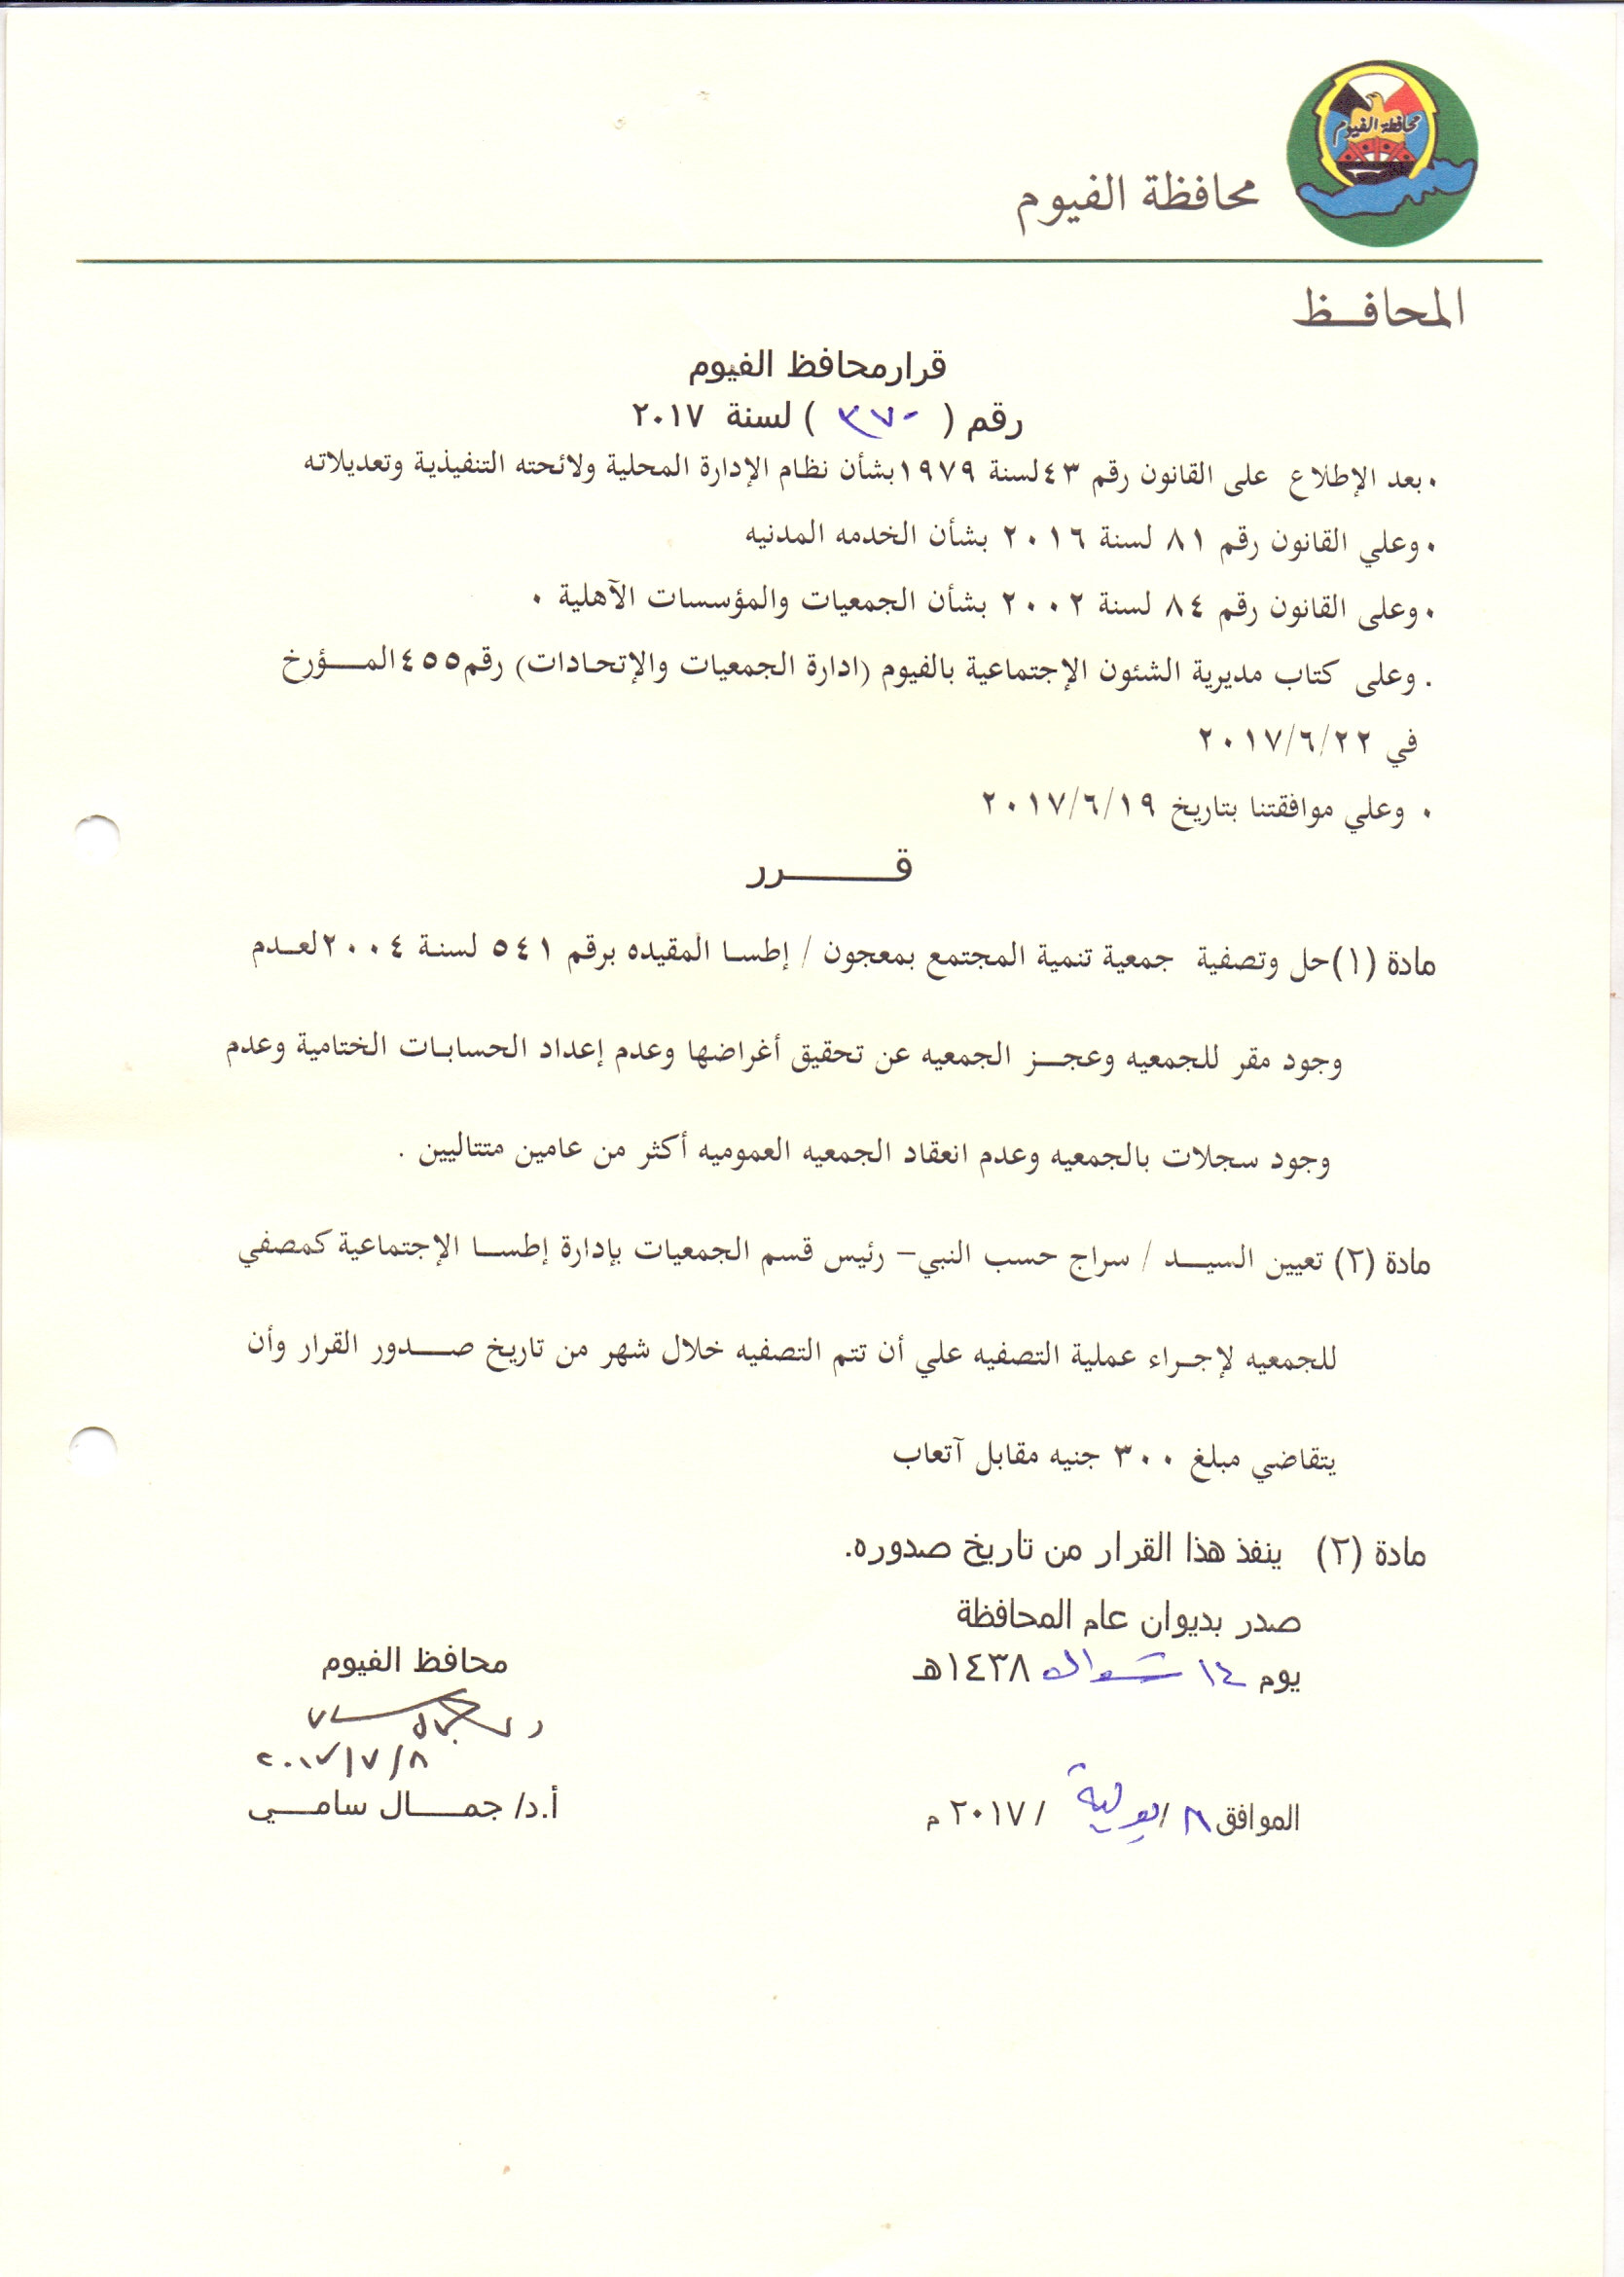 محافظة الفيوم
محافظة الفيوم
المحافــظ
قرارمحافظ الفيوم
رقم ( ٣٧٠ ) لسنة ٢٠١٧
٠بعد الإطلاع على القانون رقم ٤٣لسنة ١٩٧٩بشأن نظام الإدارة المحلية ولائحته التنفيذية وتعديلاته
٠وعلي القانون رقم ٨١ لسنة ٢٠١٦ بشأن الخدمه المدنيه
٠وعلى القانون رقم ٨٤ لسنة ٢٠٠٢ بشأن الجمعيات والمؤسسات الآهلية ٠
. وعلى كتاب مديرية الشئون الإجتماعية بالفيوم (ادارة الجمعيات والإتحادات) رقم٤٥٥المـــؤرخ
في ٢٠١٧/٦/٢٢
٠ وعلي موافقتنا بتاريخ ٢٠١٧/٦/١٩
قـــــــرر
مادة (١)حل وتصفية جمعية تنمية المجتمع بمعجون / إطسا المقيده برقم ٥٤١ لسنة ٢٠٠٤لعـدم
وجود مقر للجمعيه وعجـــز الجمعيه عن تحقيق أغراضها وعدم إعداد الحسابات الختامية وعدم
وجود سجلات بالجمعيه وعدم انعقاد الجمعيه العموميه أكثر من عامين متتاليين .
مادة (٢) تعيين السيـــد / سراج حسب النبي– رئيس قسم الجمعيات بإدارة إطســا الإجتماعية كمصفي
للجمعيه لإجـراء عملية التصفيه علي أن تتم التصفيه خلال شهر من تاريخ صــــدور القرار وأن
يتقاضي مبلغ ٣٠٠ جنيه مقابل آتعاب
مادة (٢) ينفذ هذا القرار من تاريخ صدوره.
صدر بديوان عام المحافظة
يوم ١٤ شوال ١٤٣٨هـ
الموافق ٨ /يولية / ٢٠١٧ م
محافظ الفيوم
٢٠١٧/٧/٨
أ.د/ جمــــال سامــــي